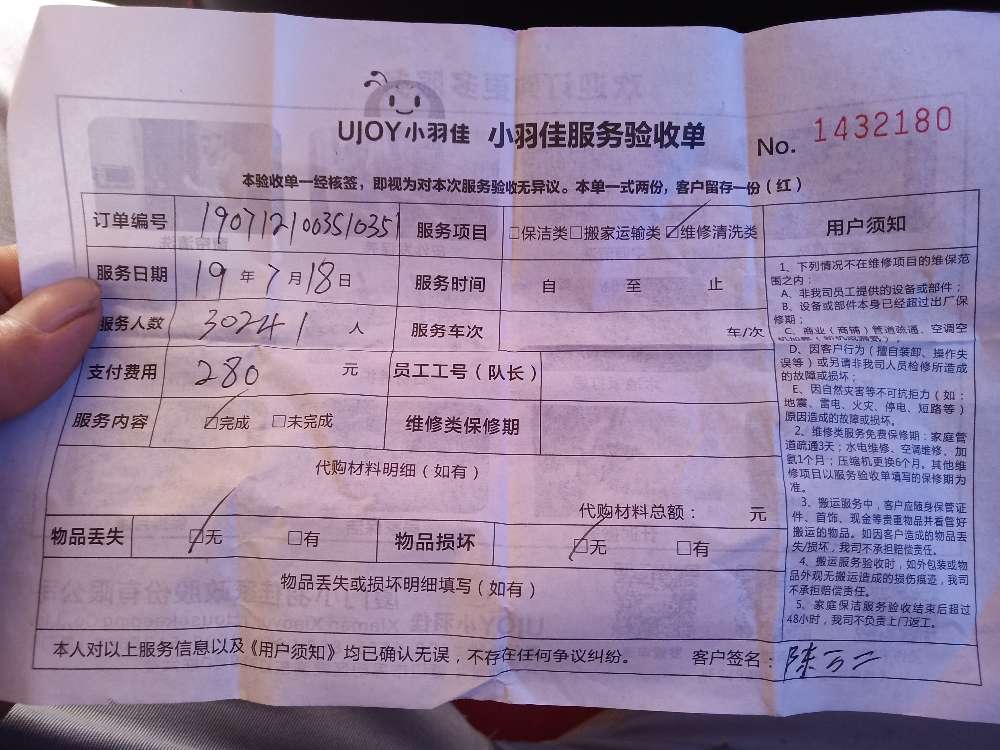 UJOY小羽佳 小羽佳服务验收单 No. 1432180
本验收单一经核签，即视为对本次服务验收无异议。本单一式两份，客户留存一份（红）
订单编号 1907121003510351 服务项目 □保洁类□搬家运输类☑维修清洗类
服务日期 19 年 7 月 18 日 服务时间 自 至 止
服务人数 30241 人 服务车次 车/次
支付费用 280 元 员工工号（队长）
服务内容 ☑完成 □未完成 维修类保修期
代购材料明细（如有）
代购材料总额： 元
物品丢失 ☑无 □有 物品损坏 ☑无 □有
物品丢失或损坏明细填写（如有）
本人对以上服务信息以及《用户须知》均已确认无误，不存在任何争议纠纷。 客户签名：陈
用户须知
1、下列情况不在维修项目的维保范
围之内：
A、非我司员工提供的设备或部件；
B、设备或部件本身已经超过出厂保
修期；
C、商业（商铺）管道疏通、空调空
D、因客户行为（擅自装卸、操作失
误等）或另请非我司人员检修所造成
的故障或损坏；
E、因自然灾害等不可抗拒力（如：
地震、雷电、火灾、停电、短路等）
原因造成的故障或损坏。
2、维修类服务免费保修期：家庭管
道疏通3天；水电维修、空调维修、加
氨1个月；压缩机更换6个月。其他维
修项目以服务验收单填写的保修期为
准。
3、搬运服务中，客户应随身保管证
件、首饰、现金等贵重物品并看管好
搬运的物品。如因客户造成的物品丢
失/损坏，我司不承担赔偿责任。
4、搬运服务验收时，如外包装或物
品外观无搬运造成的损伤痕迹，我司
不承担赔偿责任。
5、家庭保洁服务验收结束后超过
48小时，我司不负责上门返工。